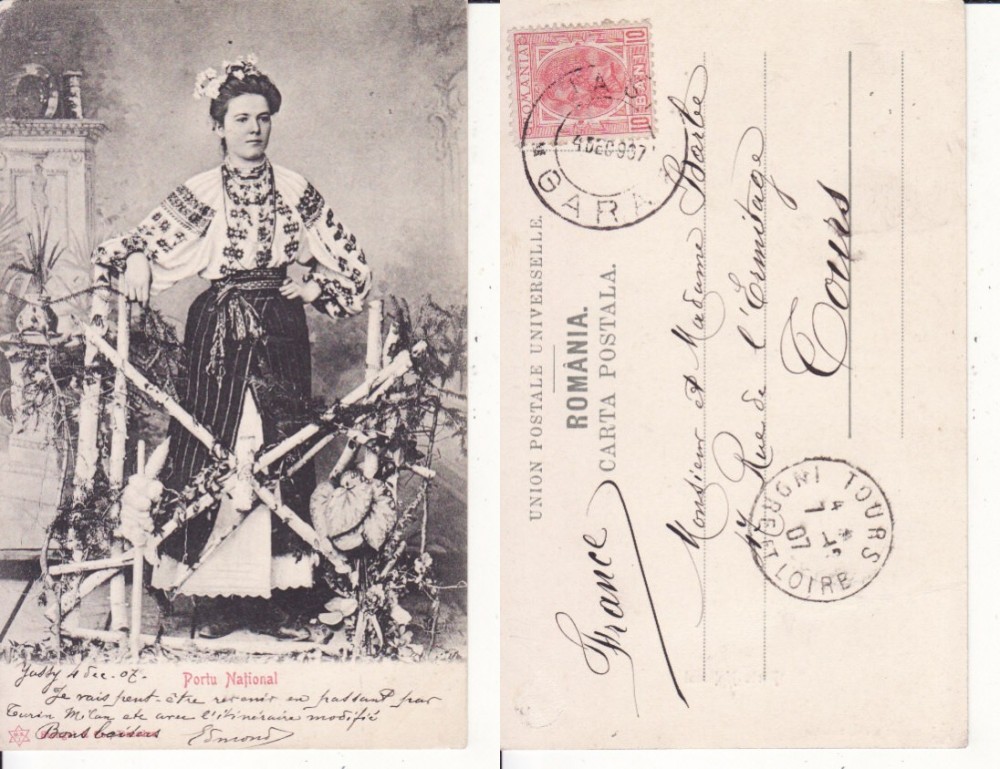 Portu Național
Jassy 4 Dec. 07.
Je vais peut-être revenir en passant par
Turin Milan etc avec l'itinéraire modifié
Bons baisers Edmond
ROMANIA
10 BANI 10
4 DEC 907
GARA
UNION POSTALE UNIVERSELLE.
ROMÂNIA.
CARTA POSTALA.
Monsieur et Madame Barbe
Rue de l'Ermitage
Tours
France
TOURS
INDRE ET LOIRE
07